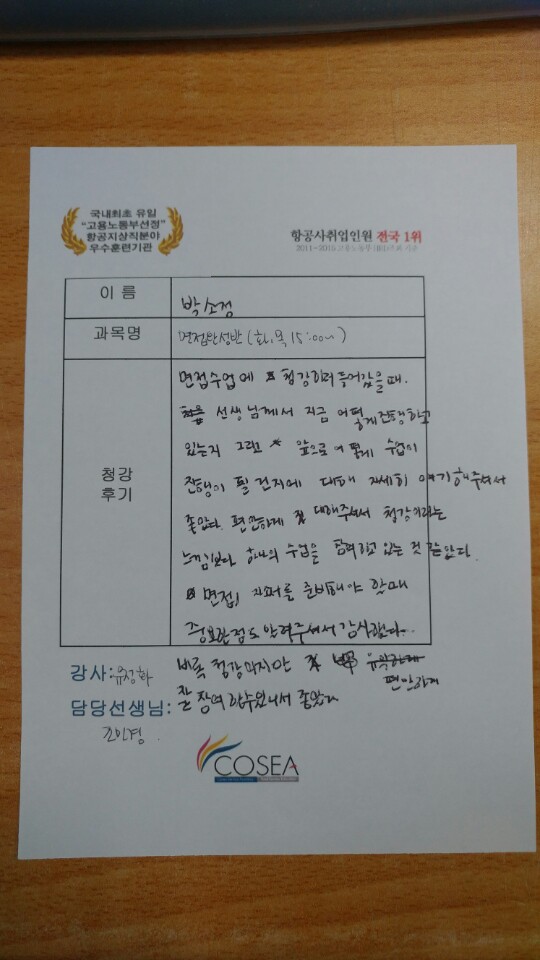 국내최초 유일
"고용노동부선정"
항공지상직분야
우수훈련기관
항공사취업인원 전국 1위
이 름 박소정
과목명 면접완성반 (화,목 15:00시)
청강
후기
면접수업에 청강하러 들어갔을때.
선생님께서 지금 어떻게 진행하고
있는지 그런 앞으로 어떻게 수업이
진행이 될 건지에 대해 자세히 얘기해주셔서
좋았다. 편안하게 잘 대해주셔서 청강이라는
느낌보다 하나의 수업을 참여하고 있는 것 같았다.
면접 자료를 준비해야 할때
중요한점도 알려주셔서 감사했다.
강사: 유정화 비록 청강이지만 편안하게
담당선생님: 잘 참여할수있어서 좋았다
조인경.
COSEA